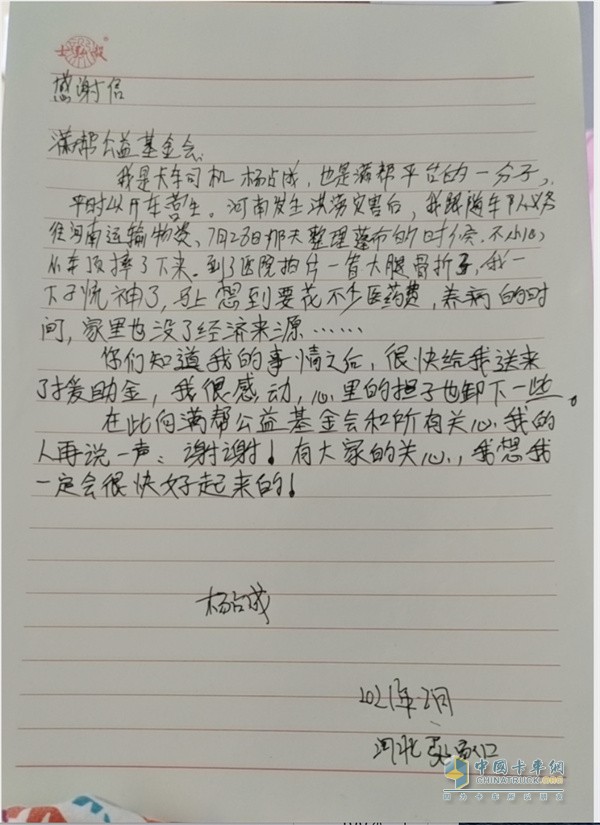 感谢信
满帮公益基金会
我是卡车司机杨占成,也是满帮平台的一分子,
平时以开车营生。河南发生洪涝灾害后,我跟随车队义务
往河南运输物资,7月23日那天整理蓬布的时候,不小心
从车顶摔了下来。到了医院拍片一看大腿骨折了,我一
下子慌神了,马上想到要花不少医药费,养病的时
间,家里也没了经济来源……
你们知道我的事情之后,很快给我送来
了援助金,我很感动,心里的担子也卸下一些。
在此向满帮公益基金会和所有关心我的
人再说一声:谢谢!有大家的关心,我想我
一定会很快好起来的!
杨占成
2021年 月
河北张家口
中国卡车网
CHINATRUCK.ORG